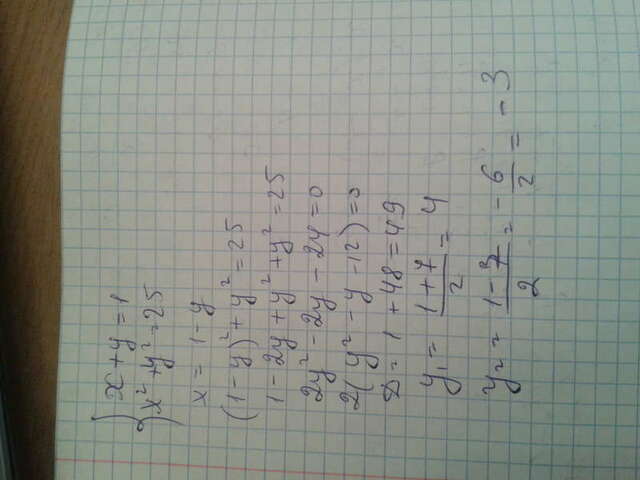 x + y = 1
x² + y² = 25
x = 1 - y
(1 - y)² + y² = 25
1 - 2y + y² + y² = 25
2y² - 2y - 24 = 0
2(y² - y - 12) = 0
D = 1 + 48 = 49
y₁ = (1 + 7)/2 = 4
y₂ = (1 - 7)/2 = - 6/2 = - 3